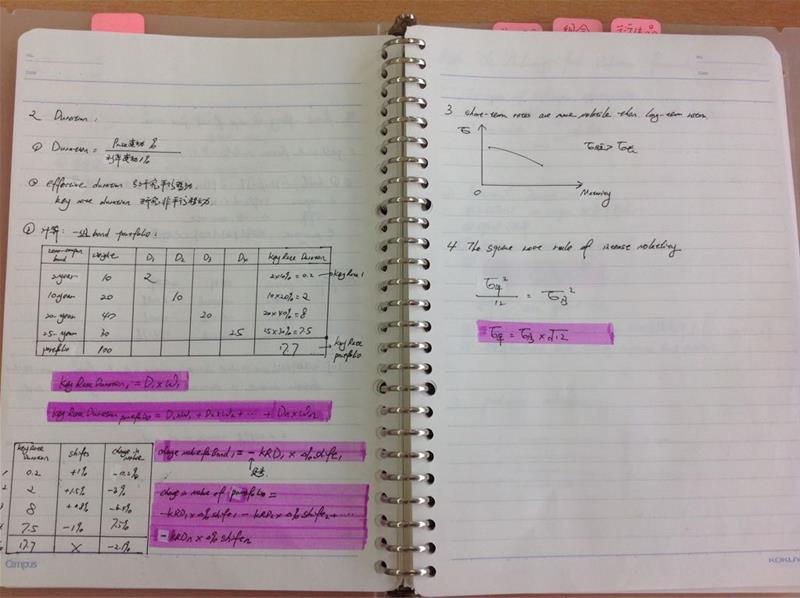 2 Duration:
① Duration = Price变动% / 利率变动1%
② effective duration 研究平行移动
key rate duration 研究非平行移动
③ 计算: 一组bond portfolio:
zero-coupon bond weight D₁ D₂ D₃ D₄ Key Rate Duration
2-year 10 2 2×10%=0.2 → Key Rate 1
10-year 20 10 10×20%=2
20-year 40 20 20×40%=8
25-year 30 25 25×30%=7.5
portfolio 100 17.7 → Key Rate portfolio
Key Rate Duration₁ = D₁×W₁
Key Rate Duration portfolio = D₁W₁ + D₂×W₂ + ··· + Dn×Wn
Key Rate Duration shifts change in value
0.2 +1% -0.2%
2 +1.5% -3%
8 -6.4%
7.5 -1% 7.5%
17.7 X -2.1%
change value for Bond₁ = - KRD₁ × Δ% shift₁
change in value of portfolio =
-KRD₁×Δ% shift₁ - KRD₂×Δ% shift₂ + ···
- KRDn×Δ% shiftn
Campus
3 short-term rates are more volatile than long-term rates.
σ
σ短 > σ长
0 Maturity
4 The square root rule of
σ年² / 12 = σ月²
σ年 = σ月 × √12
KOKUYO